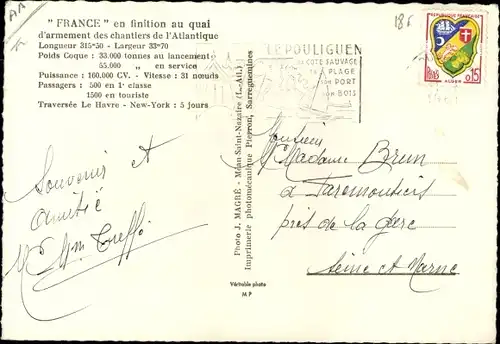 " FRANCE " en finition au quai
d'armement des chantiers de l'Atlantique
Longueur 315ᵐ50 - Largeur 33ᵐ70
Poids Coque : 33.000 tonnes au lancement
55.000 " en service
Puissance : 160.000 CV. - Vitesse : 31 nœuds
Passagers : 500 en 1ᵉ classe
1500 en touriste
Traversée Le Havre - New-York : 5 jours
Souvenir et
Amitié
Photo J. MAGRÉ - Méan-Saint-Nazaire (L.-Atl.)
Imprimerie photomécanique Pierron, Sarreguemines
Véritable photo
M P
18ᶠ
LE POULIGUEN
SA CÔTE SAUVAGE
SA PLAGE
SON PORT
SON BOIS
REPUBLIQUE FRANÇAISE
POSTES
ALGER
0,15
Monsieur
Madame Brun
à Faremoutiers
près de la gare
Seine et Marne